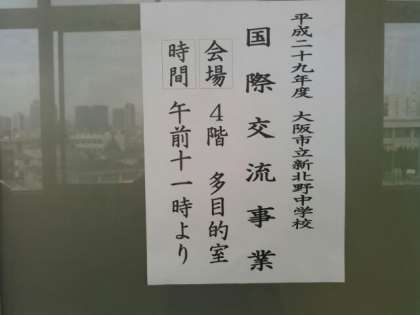 平成二十九年度 大阪市立新北野中学校
国際交流事業
会場 4階 多目的室
時間 午前十一時より